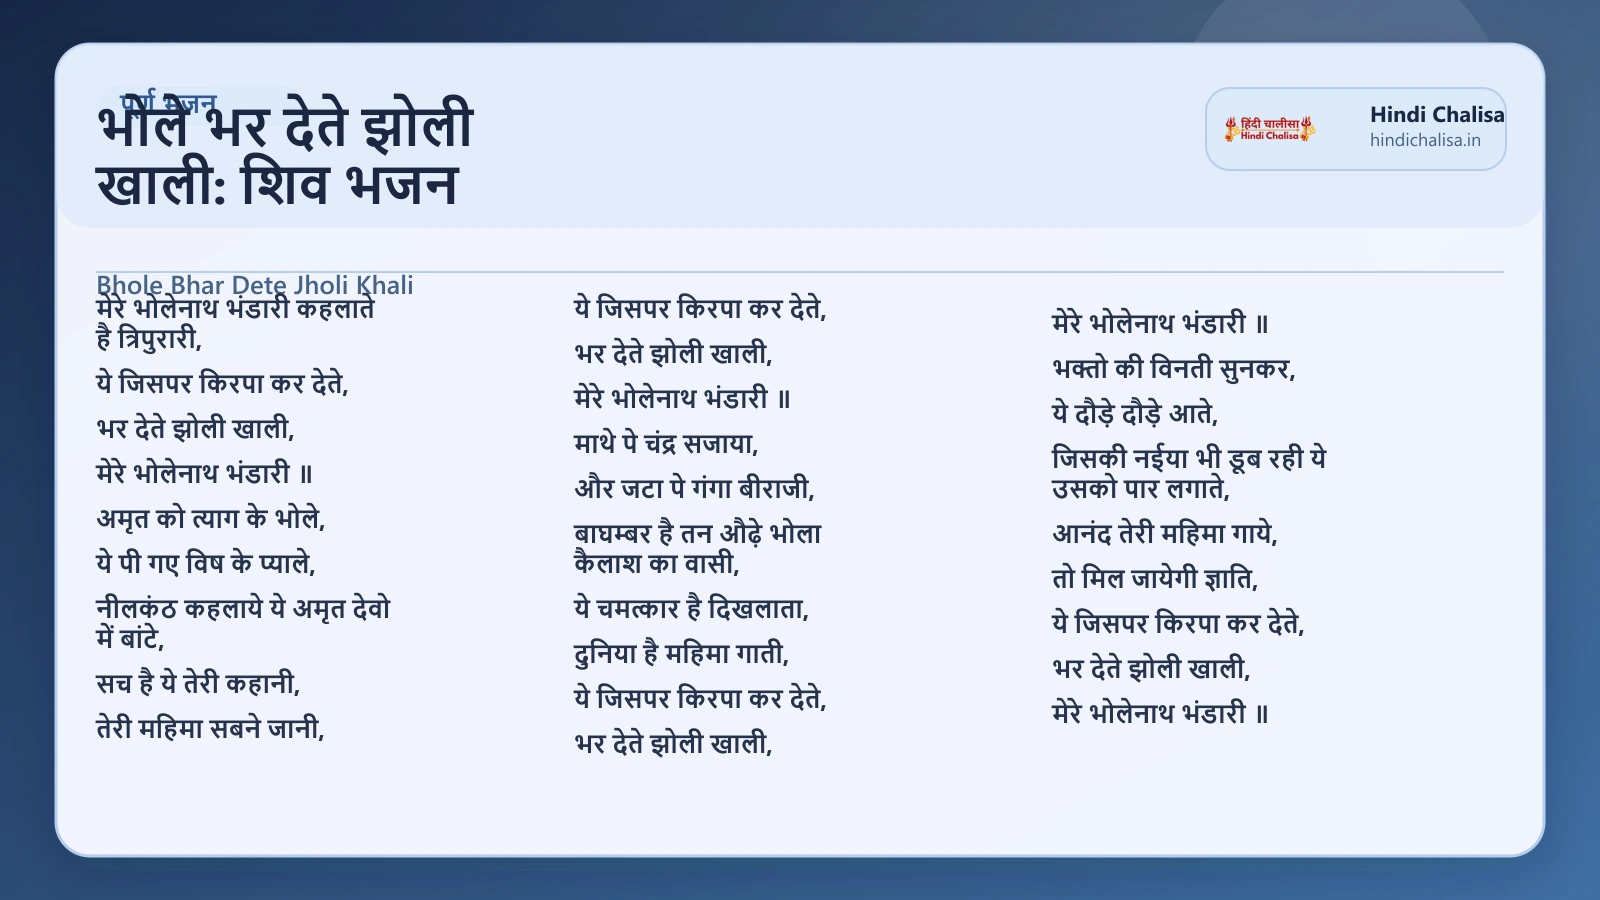 पूर्ण भजन
भोले भर देते झोली
खाली: शिव भजन
हिंदी चालीसा
Hindi Chalisa
Hindi Chalisa
hindichalisa.in
Bhole Bhar Dete Jholi Khali
मेरे भोलेनाथ भंडारी कहलाते
है त्रिपुरारी,
ये जिसपर किरपा कर देते,
भर देते झोली खाली,
मेरे भोलेनाथ भंडारी ॥
अमृत को त्याग के भोले,
ये पी गए विष के प्याले,
नीलकंठ कहलाये ये अमृत देवो
में बांटे,
सच है ये तेरी कहानी,
तेरी महिमा सबने जानी,
ये जिसपर किरपा कर देते,
भर देते झोली खाली,
मेरे भोलेनाथ भंडारी ॥
माथे पे चंद्र सजाया,
और जटा पे गंगा बीराजी,
बाघम्बर है तन औढ़े भोला
कैलाश का वासी,
ये चमत्कार है दिखलाता,
दुनिया है महिमा गाती,
ये जिसपर किरपा कर देते,
भर देते झोली खाली,
मेरे भोलेनाथ भंडारी ॥
भक्तो की विनती सुनकर,
ये दौड़े दौड़े आते,
जिसकी नईया भी डूब रही ये
उसको पार लगाते,
आनंद तेरी महिमा गाये,
तो मिल जायेगी ज्ञाति,
ये जिसपर किरपा कर देते,
भर देते झोली खाली,
मेरे भोलेनाथ भंडारी ॥